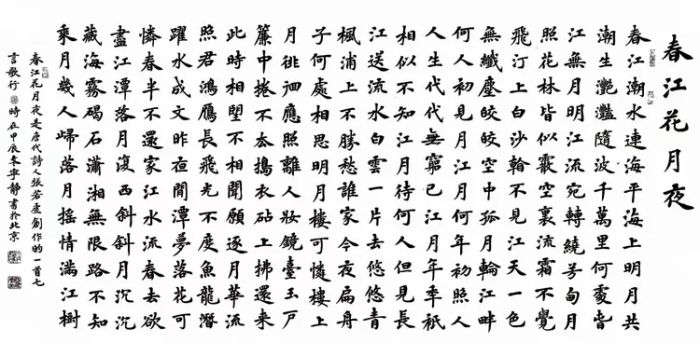 春江花月夜
春江潮水連海平海上明月共
潮生灔灔隨波千萬里何處旾
江無月明江流宛轉繞芳甸月
照花林皆似霰空裏流霜不覺
飛汀上白沙看不見江天一色
無纖塵皎皎空中孤月輪江畔
何人初見月江月何年初照人
人生代代無窮已江月年年祇
相似不知江月待何人但見長
江送流水白雲一片去悠悠青
楓浦上不勝愁誰家今夜扁舟
子何處相思明月樓可憐樓上
月徘徊應照離人妝鏡臺玉戶
簾中捲不去搗衣砧上拂還来
此時相望不相聞願逐月華流
照君鴻雁長飛光不度魚龍潛
躍水成文昨夜閒潭夢落花可
憐春半不還家江水流春去欲
盡江潭落月復西斜斜月沉沉
藏海霧碣石瀟湘無限路不知
乘月幾人歸落月摇情滿江樹
春江花月夜是唐代詩人張若虛創作的一首七
言歌行時在甲辰寧靜書於北京